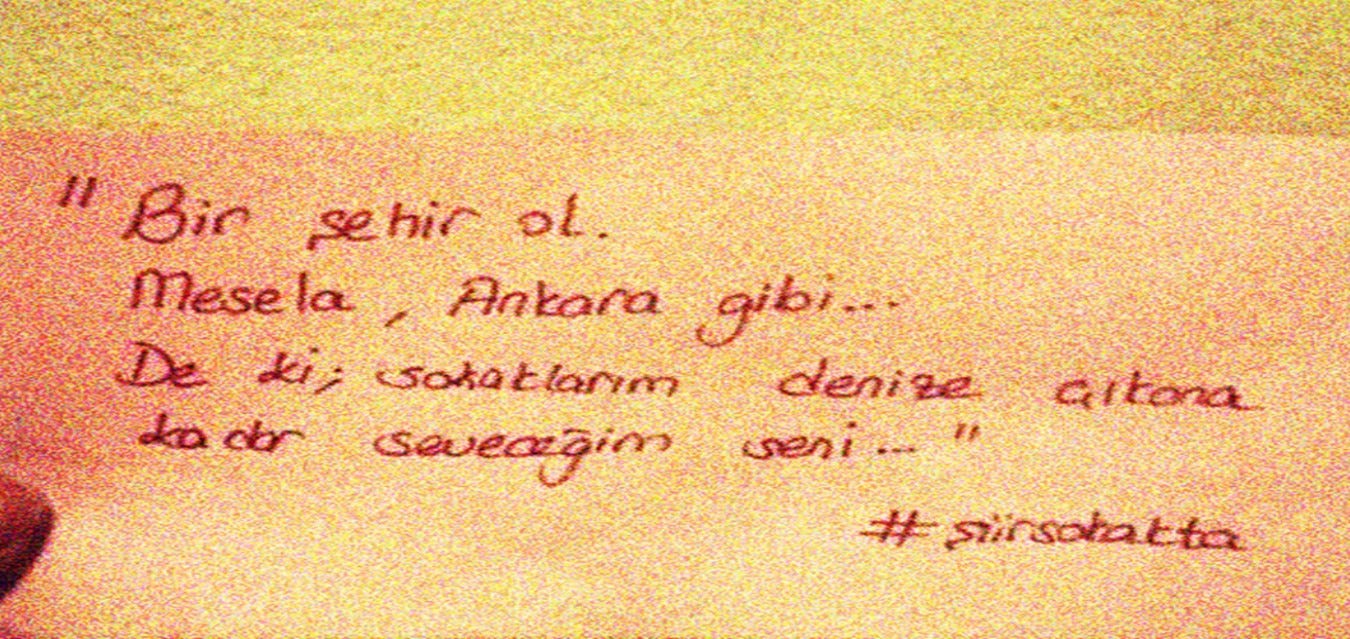 "Bir şehir ol.
Mesela, Ankara gibi...
De ki; sokaklarım denize çıkana
kadar seveceğim seni..."
#şiirsokakta